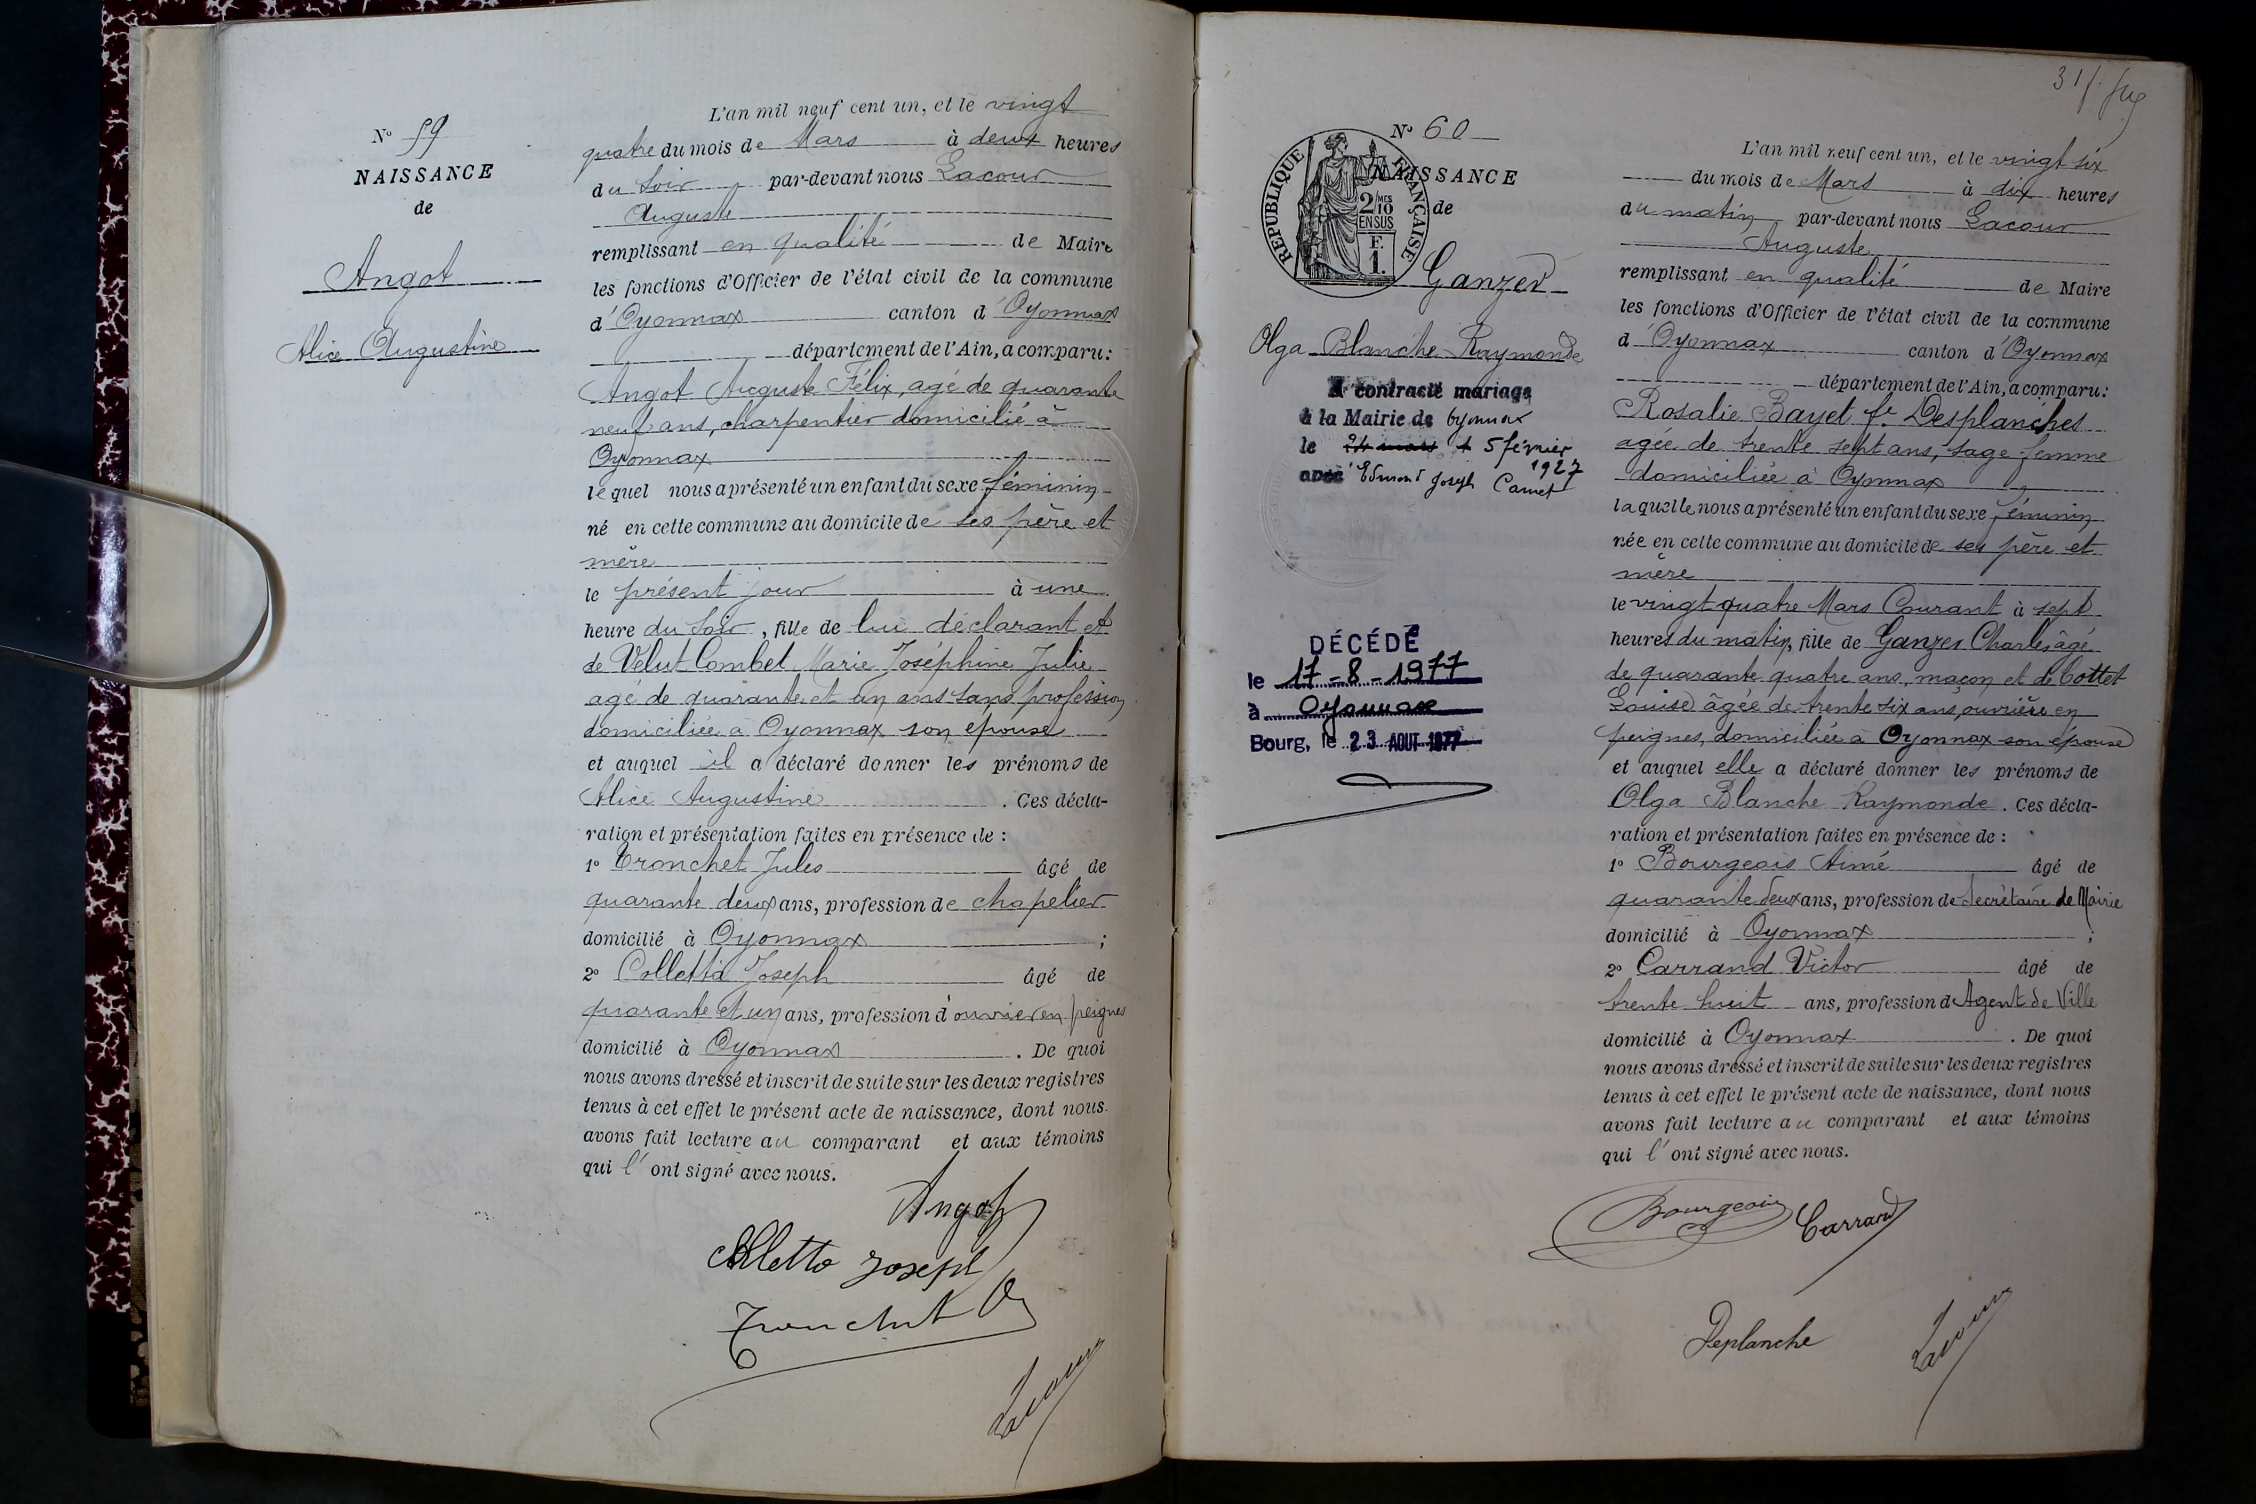 N° 59
NAISSANCE
de
Angot
Alice Augustine
L'an mil neuf cent un, et le vingt
quatre du mois de Mars à deux heures
du soir par-devant nous Lacour
Auguste
remplissant en qualité de Maire
les fonctions d'Officier de l'état civil de la commune
d'Oyonnax canton d'Oyonnax
département de l'Ain, a comparu:
Angot Auguste Félix, agé de quarante
neuf ans, charpentier domicilié à
Oyonnax
lequel nous a présenté un enfant du sexe féminin
né en cette commune au domicile de ses père et
mère
le présent jour à une
heure du soir, fille de lui déclarant et
de Velut Combet Marie Joséphine Julie
agé de quarante et un ans sans profession
domiciliée à Oyonnax son épouse
et auquel il a déclaré donner les prénoms de
Alice Augustine. Ces décla-
ration et présentation faites en présence de :
1° Tronchet Jules âgé de
quarante deux ans, profession de chapelier
domicilié à Oyonnax ;
2° Colletta Joseph âgé de
quarante et un ans, profession d'ouvrier en peignes
domicilié à Oyonnax. De quoi
nous avons dressé et inscrit de suite sur les deux registres
tenus à cet effet le présent acte de naissance, dont nous
avons fait lecture au comparant et aux témoins
qui l'ont signé avec nous.
Angot
Colletto Joseph
Tronchet
Lacour
31
N° 60
NAISSANCE
de
RÉPUBLIQUE FRANÇAISE
2/10 MES
EN SUS
F.
1.
Ganzer
Olga Blanche Raymonde
A contracté mariage
à la Mairie de Oyonnax
le 24 mars 5 février
1927
avec Edmond Joseph Carnet
DÉCÉDÉ
le 17-8-1977
à Oyonnax
Bourg, le 23 AOUT 1977
L'an mil neuf cent un, et le vingt six
du mois de Mars à dix heures
du matin par-devant nous Lacour
Auguste
remplissant en qualité de Maire
les fonctions d'Officier de l'état civil de la commune
d'Oyonnax canton d'Oyonnax
département de l'Ain, a comparu:
Rosalie Bayet fe Desplanches
agée de trente sept ans, sage femme
domiciliée à Oyonnax
laquelle nous a présenté un enfant du sexe féminin
née en cette commune au domicile de ses père et
mère
le vingt quatre Mars Courant à sept
heures du matin, fille de Ganzer Charles, âgé
de quarante quatre ans, maçon et de Cottet
Louise âgée de trente six ans, ouvrière en
peignes, domiciliée à Oyonnax son épouse
et auquel elle a déclaré donner les prénoms de
Olga Blanche Raymonde. Ces décla-
ration et présentation faites en présence de :
1° Bourgeois Aimé âgé de
quarante deux ans, profession de Secrétaire de Mairie
domicilié à Oyonnax ;
2° Carrand Victor âgé de
trente huit ans, profession d'Agent de Ville
domicilié à Oyonnax. De quoi
nous avons dressé et inscrit de suite sur les deux registres
tenus à cet effet le présent acte de naissance, dont nous
avons fait lecture au comparant et aux témoins
qui l'ont signé avec nous.
Bourgeois Carrand
Deplanche
Lacour